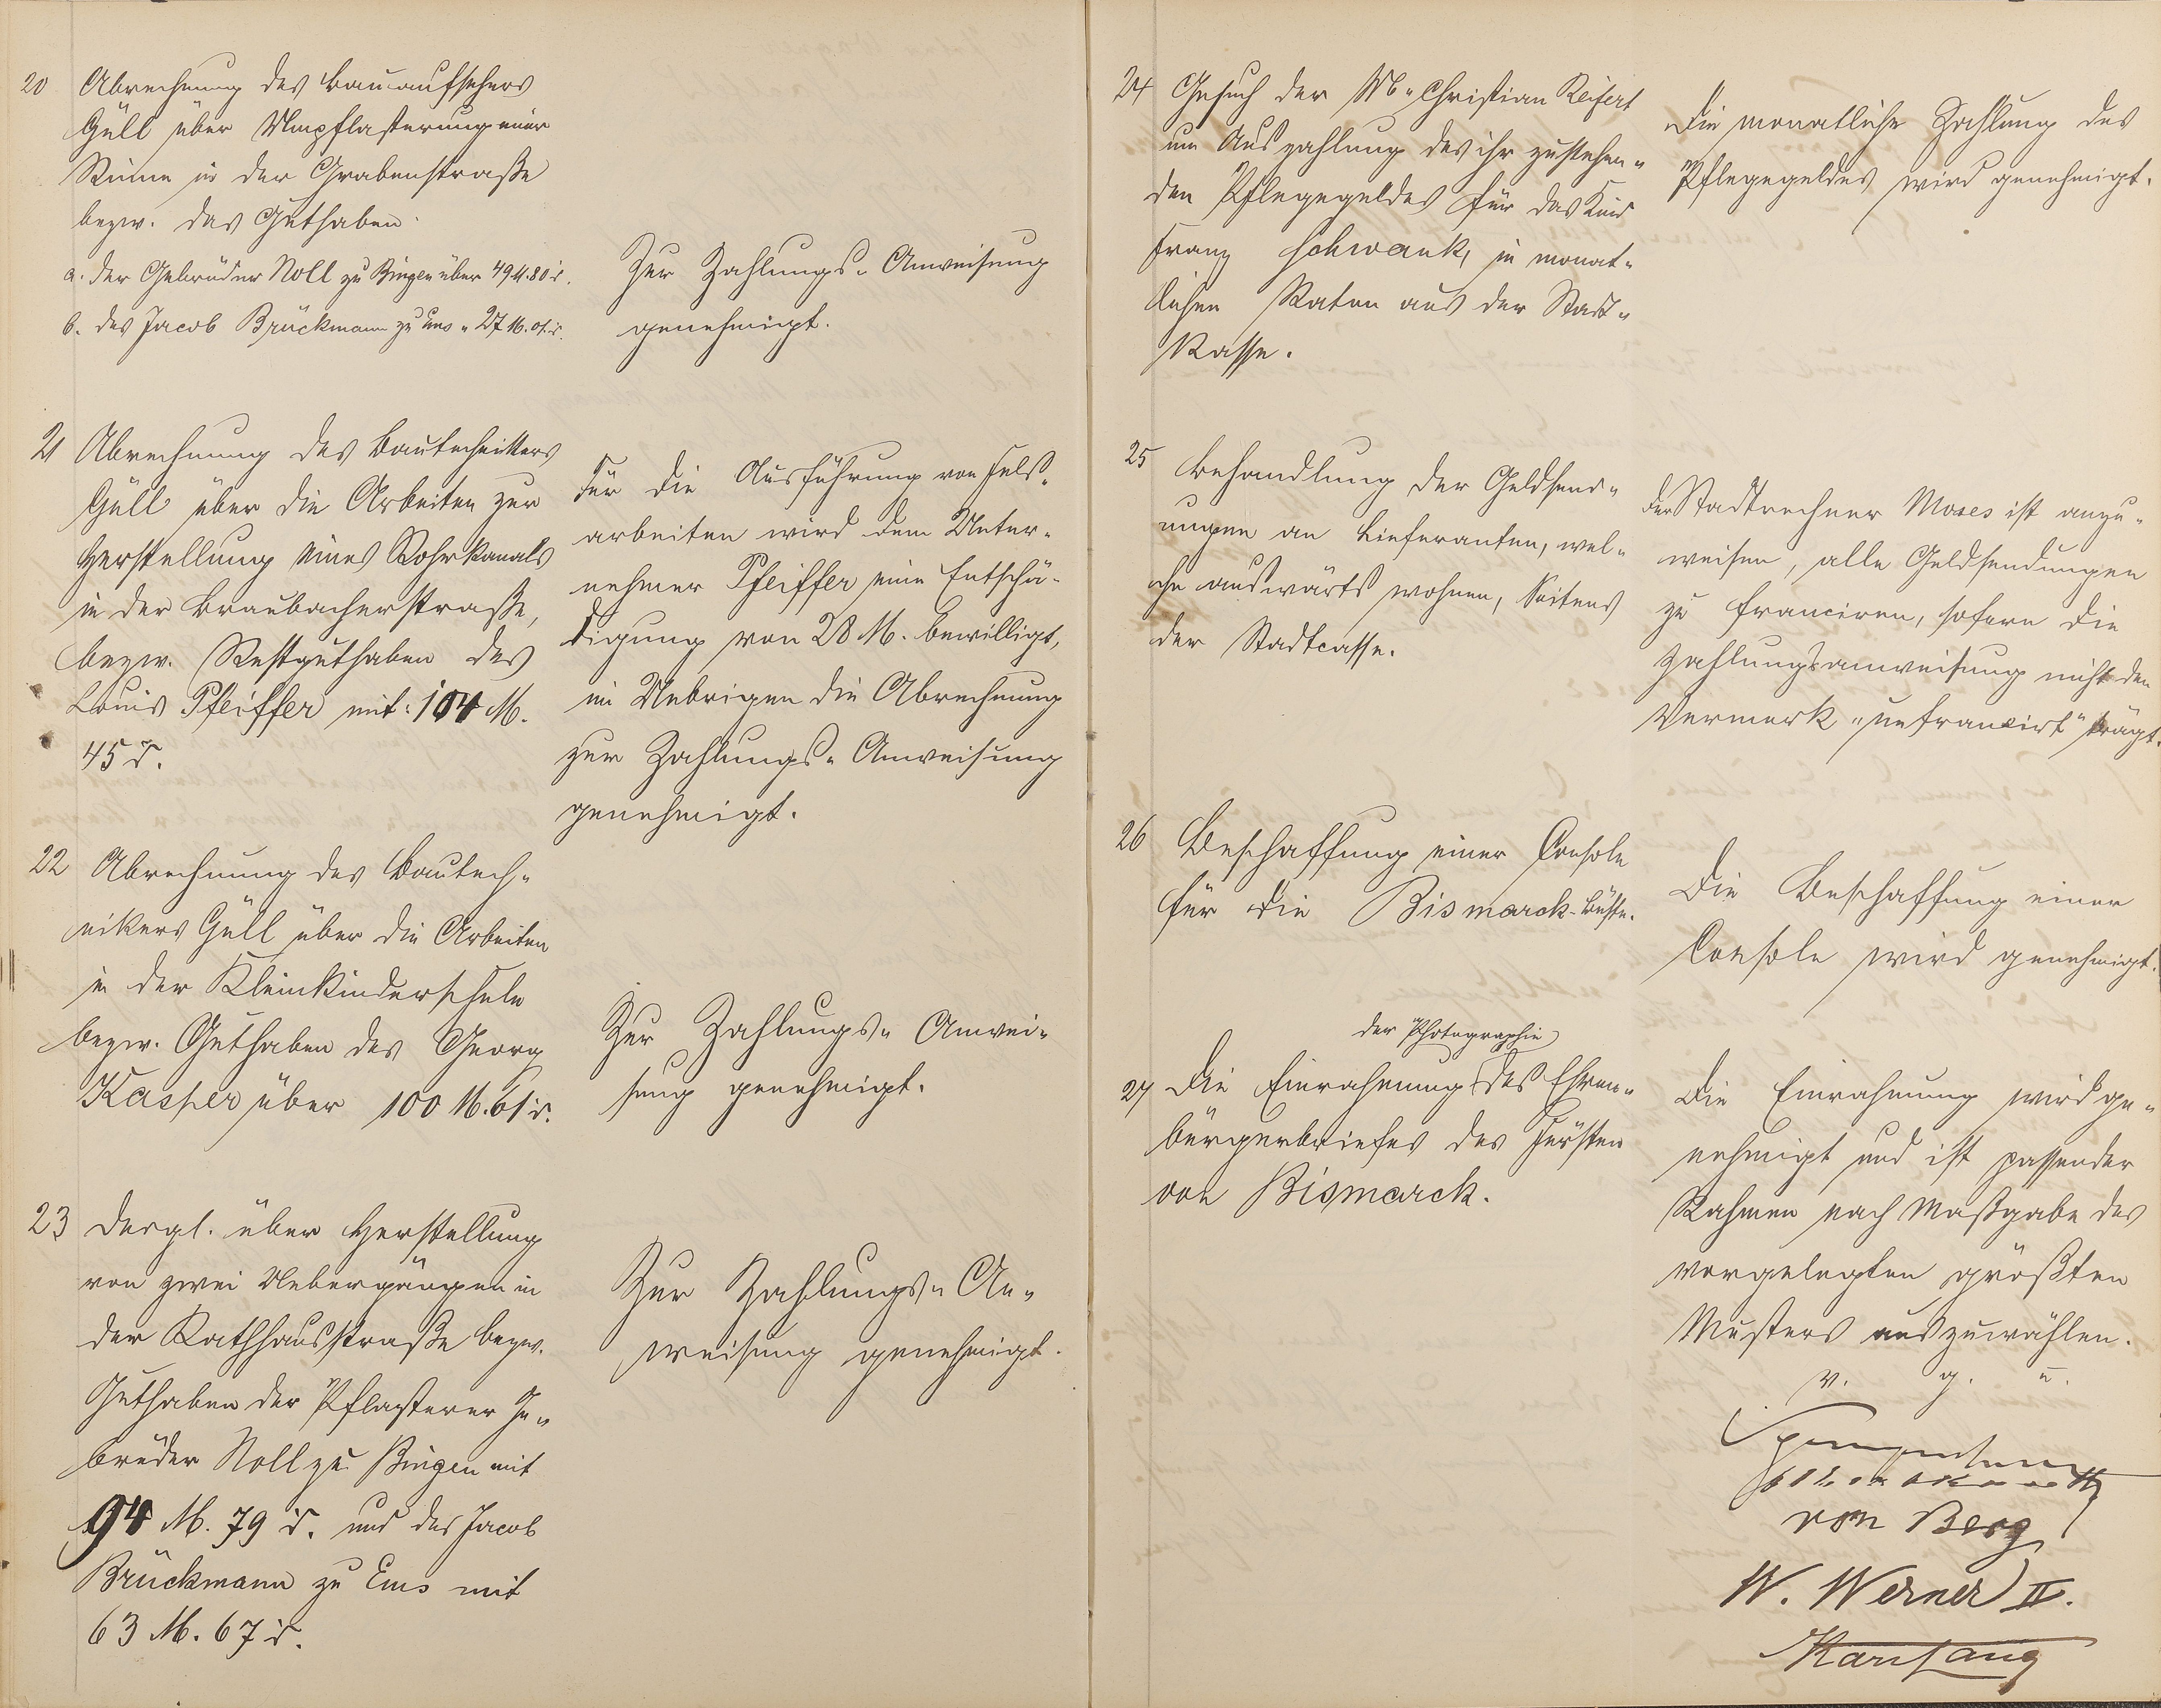 20 Abrechnung des Bauaufsehers
Güll über Umpflasterung einer
Rinne in der Grabenstraße
bezw. das Guthaben
a. der Gebrüder Noll zu Bingen über 49 M. 80 d.
b. des Jacob Brückmann zu Ems " 27 M. 01 d.
Zur Zahlungs-Anweisung
genehmigt.
21 Abrechnung des Bautechnikers
Güll über die Arbeiten zur
Herstellung eines Rohrkanals
in der Braubacherstraße,
bezw. Restguthaben des
Louis Pfeiffer mit: 104 M.
45 d.
Für die Ausführung von Fels-
arbeiten wird dem Unter-
nehmer Pfeiffer eine Entschä-
digung von 28 M. bewilligt,
im Uebrigen die Abrechnung
zur Zahlungs-Anweisung
genehmigt.
22 Abrechnung des Bautech-
nikers Güll über die Arbeiten
in der Kleinkinderschule
bezw. Guthaben des Georg
Kasper über 100 M. 61 d.
Zur Zahlungs-Anwei-
sung genehmigt.
23 Dergl. über Herstellung
von zwei Uebergängen in
der Rathhausstraße bezw.
Guthaben der Pflasterer Ge-
brüder Noll zu Bingen mit
94 M. 79 d. und des Jacob
Brückmann zu Ems mit
63 M. 67 d.
Zur Zahlungs-An-
weisung genehmigt.
24 Gesuch der Christian Reifert
um Auszahlung des ihr zustehen-
den Pflegegeldes für das Kind
Franz Schwank, in monat-
lichen Raten aus der Stadt-
Kasse.
Die monatliche Zahlung des
Pflegegeldes wird genehmigt.
25 Behandlung der Geldsend-
ungen an Lieferanten, wel-
che auswärts wohnen, Seitens
der Stadtcasse.
Der Stadtrechner Moses ist anzu-
weisen, alle Geldsendungen
zu franciren, sofern die
Zahlungsanweisung nicht den
Vermerk "unfrancirt" trägt.
26 Beschaffung einer Console
für die Bismarck-Büste.
Die Beschaffung einer
Console wird genehmigt.
der Photographie
27 Die Einrahmung des Ehren-
bürgerbriefes des Fürsten
von Bismarck.
Die Einrahmung wird ge-
nehmigt und ist passender
Rahmen nach Maßgabe des
vorgelegten größten
Musters auszuwählen.
v. g. u.
von Berg
W. Werner II.
Karl Lang